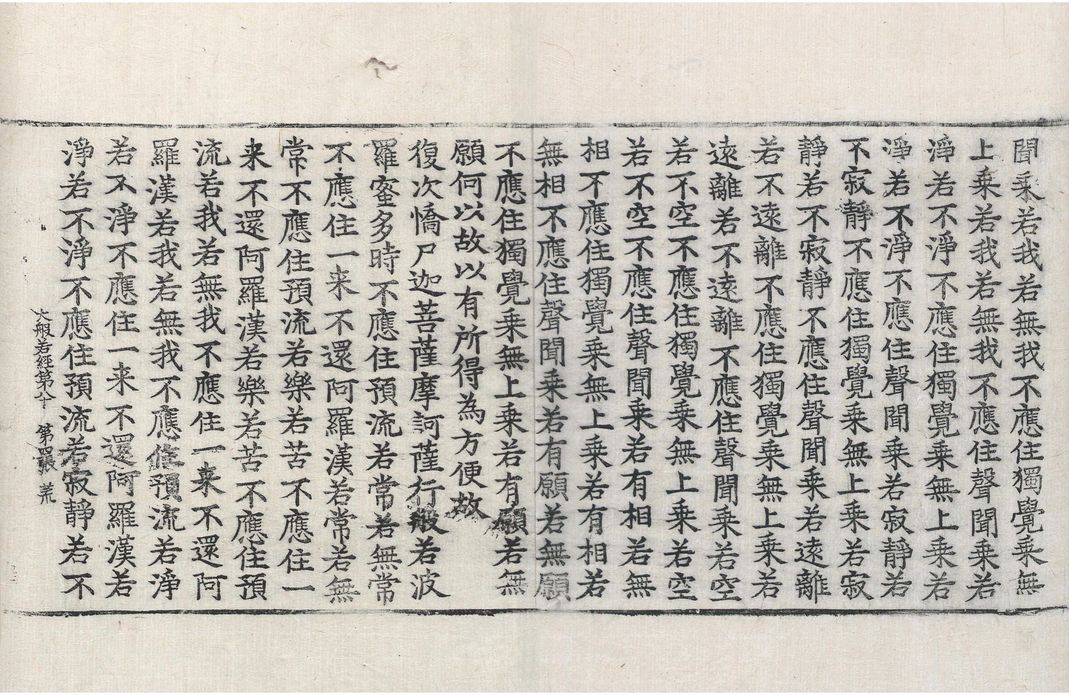 聞乘若我若無我不應住獨覺乘無
上乘若我若無我不應住聲聞乘若
淨若不淨不應住獨覺乘無上乘若
淨若不淨不應住聲聞乘若寂靜若
不寂靜不應住獨覺乘無上乘若寂
靜若不寂靜不應住聲聞乘若遠離
若不遠離不應住獨覺乘無上乘若
遠離若不遠離不應住聲聞乘若空
若不空不應住獨覺乘無上乘若空
若不空不應住聲聞乘若有相若無
相不應住獨覺乘無上乘若有相若
無相不應住聲聞乘若有願若無願
不應住獨覺乘無上乘若有願若無
願何以故以有所得為方便故
復次憍尸迦菩薩摩訶薩行般若波
羅蜜多時不應住預流若常若無常
不應住一来不還阿羅漢若常若無
常不應住預流若樂若苦不應住一
来不還阿羅漢若樂若苦不應住預
流若我若無我不應住一来不還阿
羅漢若我若無我不應住預流若淨
若不淨不應住一来不還阿羅漢若
淨若不淨不應住預流若寂靜若不
大般若經第八十 第四張 荒